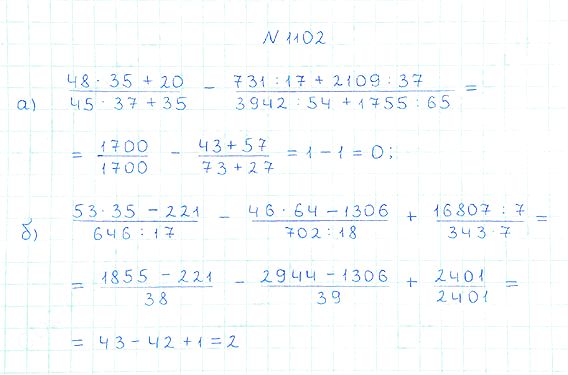 N 1102
а) (48 · 35 + 20)/(45 · 37 + 35) − (731 : 17 + 2109 : 37)/(3942 : 54 + 1755 : 65) =
= 1700/1700 − (43 + 57)/(73 + 27) = 1 − 1 = 0;
б) (53 · 35 − 221)/(646 : 17) − (46 · 64 − 1306)/(702 : 18) + (16807 : 7)/(343 · 7) =
= (1855 − 221)/38 − (2944 − 1306)/39 + 2401/2401 =
= 43 − 42 + 1 = 2